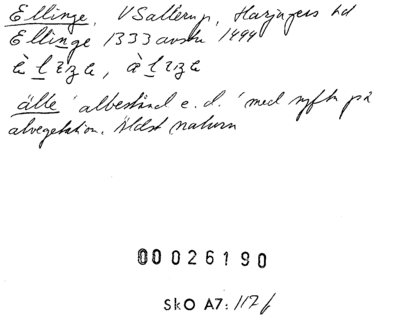 Ellinge, V Sallerup, Harjagers hd
Ellinge 1333 avskr 1494
älte 'albestånd e. d.' med syftn på
alvegetation. Äldst naturn
00026190
SkO A7: 117 f